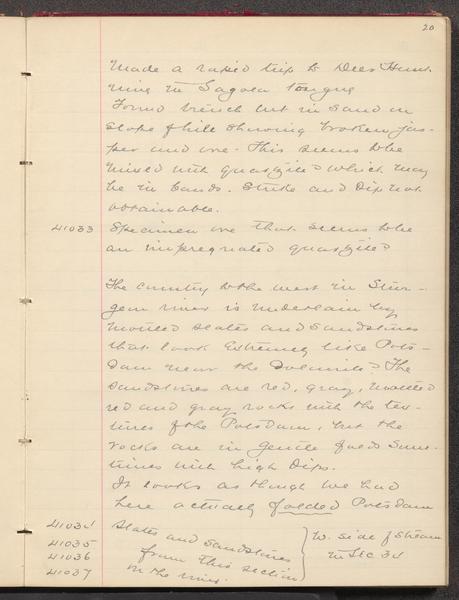 20
Made a rapid trip to Deer Hunt
mine in Sagola tongue
Found trench cut in sand on
slope of hill showing broken jas-
per and ore. This seems to be
mixed with quartzite? which may
be in bands. Strike and Dip not
obtainable.
41033 Specimen ore that seems to be
an impregnated quartzite?
The country to the west in Stur-
geon river is underlain by
mottled slates and sandstones
that look extremely like Pots-
dam near the Dolomite? The
sandstones are red, gray, mottled
red and gray rocks with the tex-
tures of the Potsdam, but the
rocks are in gentle folds some-
times with high dips.
It looks as though we had
here actually folded Potsdam
41034 Slates and sandstones
41035 from this section
41036 on the river.
41037
W. side of stream
in Sec 34